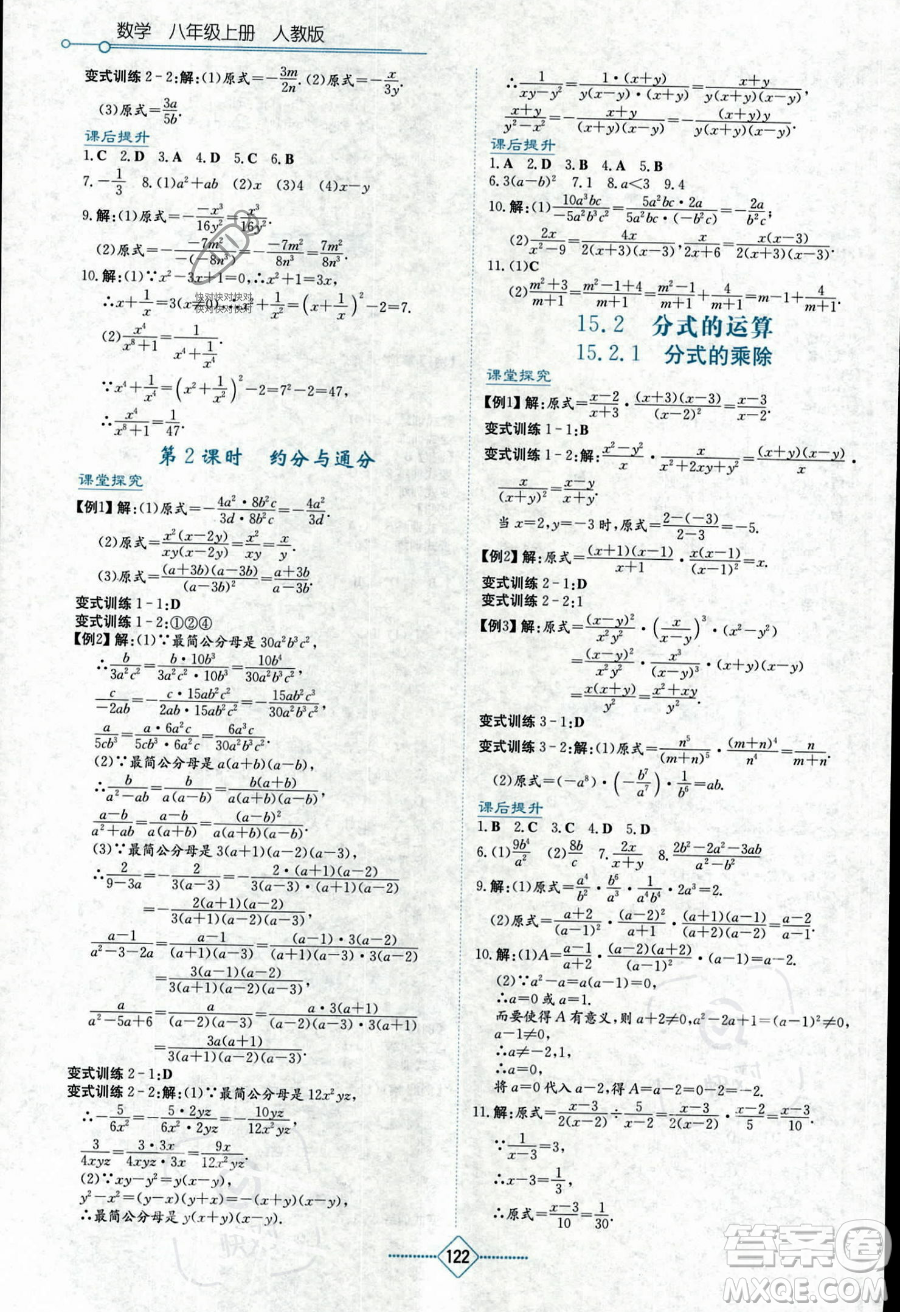 数学 八年级上册 人教版
变式训练2-2:解:(1)原式=-3m/2n. (2)原式=-x/3y.
(3)原式=3a/5b.
课后提升
1.C 2.D 3.A 4.D 5.C 6.B
7.-1/3 8.(1)a²+ab (2)x (3)4 (4)x-y
9.解:(1)原式=-(-x³)/16y²=x³/16y².
(2)原式=-(-7m²)/(-8n³)=-7m²/8n³.
10.解:(1)∵x²-3x+1=0,∴x²+1=3x,
∴x+1/x=3(x≠0),∴x²+1/x²=(x+1/x)²-2=7.
快对快对快对
快对快对快对
(2)x⁴/(x⁸+1)=1/(x⁴+1/x⁴),
∵x⁴+1/x⁴=(x²+1/x²)²-2=7²-2=47,
∴x⁴/(x⁸+1)=1/47.
第2课时 约分与通分
课堂探究
【例1】解:(1)原式=-(4a²·8b²c)/(3d·8b²c)=-4a²/3d.
(2)原式=x²(x-2y)/xy(x-2y)=x/y.
(3)原式=(a+3b)(a-3b)/(a-3b)²=(a+3b)/(a-3b).
变式训练1-1:D
变式训练1-2:①②④
【例2】解:(1)∵最简公分母是30a²b³c²,
∴b/3a²c²=(b·10b³)/(3a²c²·10b³)=10b⁴/30a²b³c²,
c/-2ab=-(c·15ab²c²)/(2ab·15ab²c²)=-15ab²c³/30a²b³c²,
a/5cb³=(a·6a²c)/(5cb³·6a²c)=6a³c/30a²b³c².
(2)∵最简公分母是a(a+b)(a-b),
∴b/(a²-ab)=b/a(a-b)=b(a+b)/a(a+b)(a-b),
(a-b)/(a²+ab)=(a-b)/a(a+b)=(a-b)²/a(a+b)(a-b).
(3)∵最简公分母是3(a+1)(a-2)(a-3),
∴2/(9-3a)=-2·(a+1)(a-2)/3(a-3)·(a+1)(a-2)
=-2(a+1)(a-2)/3(a+1)(a-2)(a-3),
(a-1)/(a²-3-2a)=(a-1)/(a+1)(a-3)=(a-1)·3(a-2)/(a+1)(a-3)·3(a-2)
=3(a-1)(a-2)/3(a+1)(a-2)(a-3),
a/(a²-5a+6)=a/(a-2)(a-3)=a·3(a+1)/(a-2)(a-3)·3(a+1)
=3a(a+1)/3(a+1)(a-2)(a-3).
变式训练2-1:D
变式训练2-2:解:(1)∵最简公分母是12x²yz,
∴-5/6x²=-(5·2yz)/(6x²·2yz)=-10yz/12x²yz,
3/4xyz=(3·3x)/(4xyz·3x)=9x/12x²yz.
(2)∵xy-y²=y(x-y),x²-y²=(x+y)(x-y),
∴最简公分母是y(x+y)(x-y).
∴1/(xy-y²)=1·(x+y)/y(x-y)·(x+y)=(x+y)/y(x+y)(x-y),
(x+y)/(x²-y²)=(x+y)·y/(x+y)(x-y)·y=(x+y)y/y(x+y)(x-y).
课后提升
1.A 2.D 3.B 4.A 5.A
6.3(a-b)² 7.1 8.a<3 9.4
10.解:(1)10a³bc/-5a²b³c²=(5a²bc·2a)/(5a²bc·(-b²c))=-2a/b²c;
(2)2x/(x²-9)=4x/2(x+3)(x-3)=2x/(x+3)(x-3).
11.(1)C
(2)(m²+3)/(m+1)=(m²-1+4)/(m+1)=(m²-1)/(m+1)+4/(m+1)=m-1+4/(m+1).
15.2 分式的运算
15.2.1 分式的乘除
课堂探究
【例1】解:原式=(x-2)/(x+3)·(x+3)(x-3)/(x-2)²=(x-3)/(x-2).
变式训练1-1:D
变式训练1-2:解:(x²-y²)/x·x/(x²+2xy+y²)=(x+y)(x-y)/x·
x/(x+y)²=(x-y)/(x+y).
当x=2,y=-3时,原式=(2-(-3))/(2-3)=-5.
【例2】解:原式=(x+1)(x-1)/(x+1)·x(x-1)/(x-1)²=x.
变式训练2-1:D
变式训练2-2:1
【例3】解:原式=(x-y)²/x²y²·(x/(x-y))³·(x²-y²)
=(x-y)²/x²y²·x³/(x-y)³·(x+y)(x-y)
=x(x+y)/y²=(x²+xy)/y².
变式训练3-1:D
变式训练3-2:解:(1)原式=n⁵/(m+n)⁵·(m+n)⁴/n⁴=n/(m+n).
(2)原式=(-a⁸)·(-b⁷/a⁷)·1/b⁶=ab.
课后提升
1.B 2.C 3.C 4.D 5.D
6.(1)9b⁴/a² (2)8b/c 7.(x+2)/(x+x) 8.(2b²-2a²-3ab)/(a²-b²)
9.解:(1)原式=a⁴/b²·b⁶/a³·1/a⁴b⁴·2a³=2.
(2)原式=(a+2)/(a-1)·(a-2)²/(a+2)(a-2)·(a+1)(a-1)/(a+1)=a-2
10.解:(1)A=(a-1)/(a+2)·(a-2)(a+2)/(a-1)²·(a-1)=a-2.
(2)∵a²-a=0,
∴a=0或a=1.
而要使得A有意义,则a+2≠0,a²-2a+1=(a-1)²≠0,
a-1≠0.
∴a≠-2,a≠1,∴a=0.
将a=0代入a-2,得原式=a-2=0-2=-2.
11.解:原式=(x-3)/2(x-2)÷5/(x-2)=(x-3)/2(x-2)·(x-2)/5=(x-3)/10.
∵1/(x-3)=3,
∴x-3=1/3,
∴原式=(x-3)/10=1/30.
122
答案圈
MXQE.COM